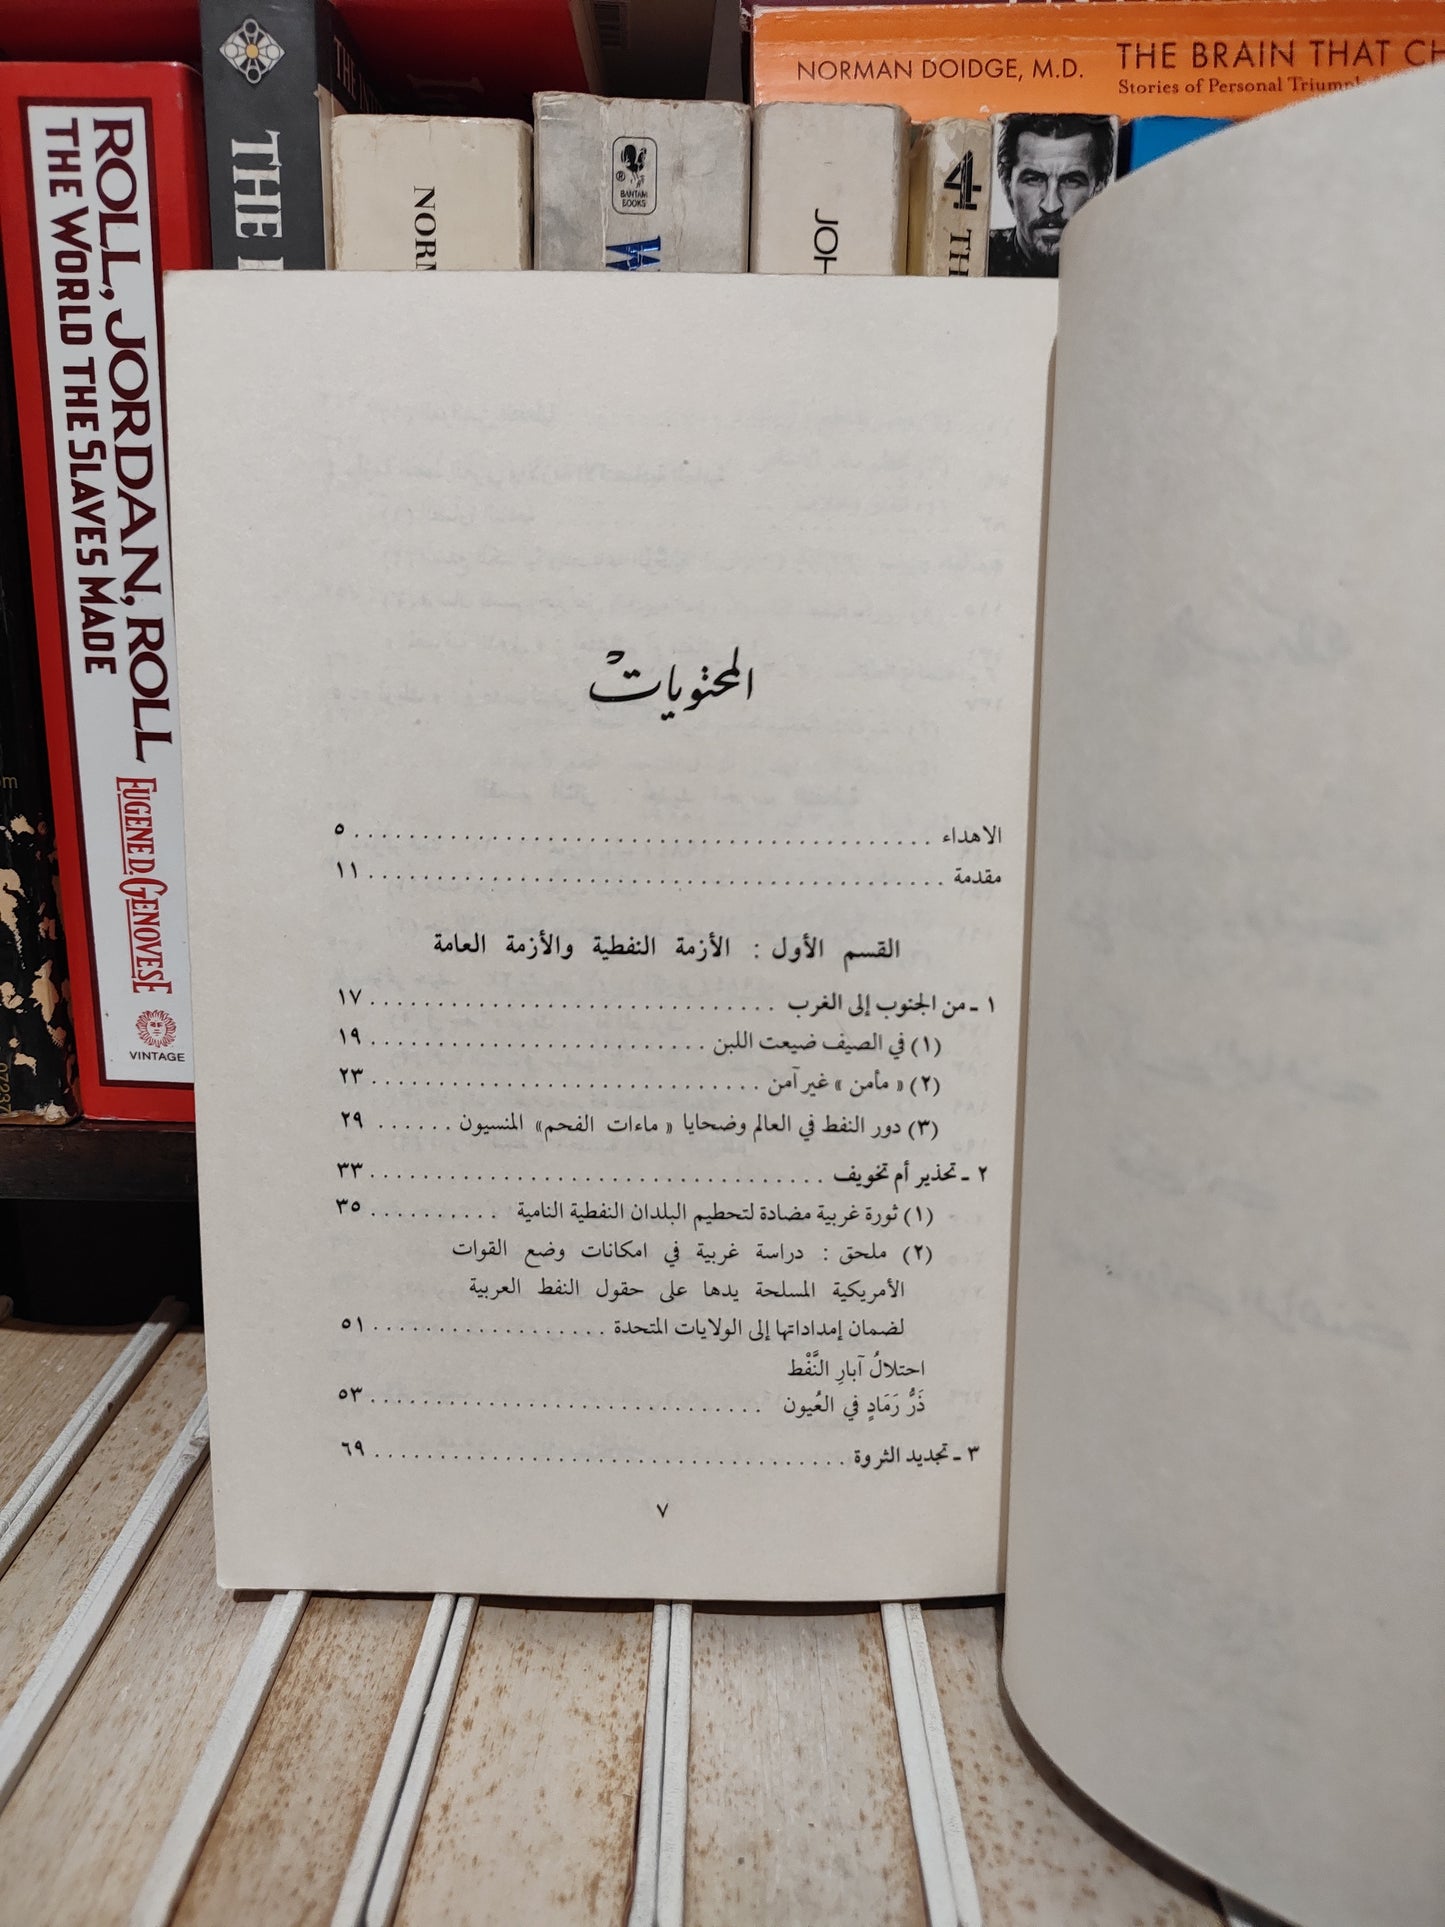 NORMAN DOIDGE, M.D.
THE BRAIN THAT CH
Stories of Personal Triumph
ROLL, JORDAN, ROLL
THE WORLD THE SLAVES MADE
EUGENE D. GENOVESE
VINTAGE
THE
THE
NORM
®
BANTAM
BOOKS
W
JOH
4
TH
om
07237
المحتويات
الاهداء ........................................ ٥
مقدمة ........................................ ١١
القسم الأول : الأزمة النفطية والأزمة العامة
١ ـ من الجنوب إلى الغرب .............................. ١٧
(١) في الصيف ضيعت اللبن ......................... ١٩
(٢) « مأمن » غير آمن ............................. ٢٣
(٣) دور النفط في العالم وضحايا « ماءات الفحم» المنسيون ...... ٢٩
٢ ـ تحذير أم تخويف .................................. ٣٣
(١) ثورة غربية مضادة لتحطيم البلدان النفطية النامية .......... ٣٥
(٢) ملحق : دراسة غربية في امكانات وضع القوات
الأمريكية المسلحة يدها على حقول النفط العربية
لضمان إمداداتها إلى الولايات المتحدة .................. ٥١
احتلالُ آبارِ النَّفْط
ذَرُّ رَمَادٍ في العُيون .............................. ٥٣
٣ ـ تجديد الثروة ................................... ٦٩
٧